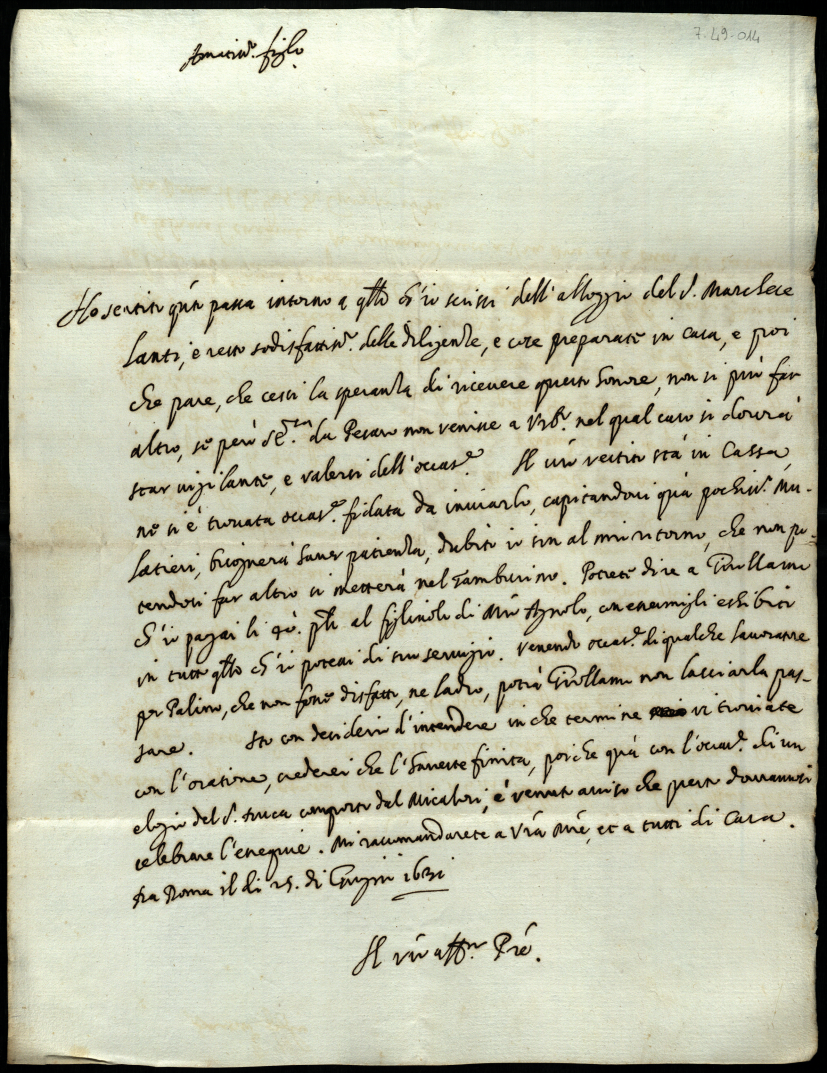 7.49-014
Amatiss.º figlo.
Ho sentito q.to passa intorno a q.llo ch'io scrissi dell'alloggio del S. Marchese
Lanti, e resto sodisfattiss.º delle diligenze, e cose preparate in casa, e poi
che pare, che cessi la speranza di ricevere questo honore, non si può far
altro, se però da Pesaro non venisse a Urb.º nel qual caso si dovrà
star vigilante, e valersi dell'occas.e Il v̄ro vestito stà in Cassa,
ne si è trovata occas.e fidata da inviarlo, capitandovi quà pochiss.i Mu-
latieri, bisognerà haver patienza, dubito io sin al mio ritorno, che non po-
tendosi far altro si metterà nel Tamburino. Potrete dire a Girollamo
ch'io pagai li p.li al figliuolo di M.ro Agnolo, con essermigli esshibito
in tutto q.llo ch'io potevi di suo servizio. Venendo occas.e di qualche lavoratore
per Palino, che non fosse disfatto, ne ladro, potrà Girollamo non lasciarla pas-
sare. Sto con desiderio d'intendere in che termine vi troviate
con l'oratione, crederei che l'haveste finita, poiche quà con l'occas.e di un
elogio del S. Duca composto dal Micalori, è venuto aviso che presto dovranno
celebrare l'esequie. Mi racomandarete a V̄ra M̄re, et a tutti di Casa.
Da Roma il di 25. di Giugno 1631
Il v̄ro aff.mo P̄re.